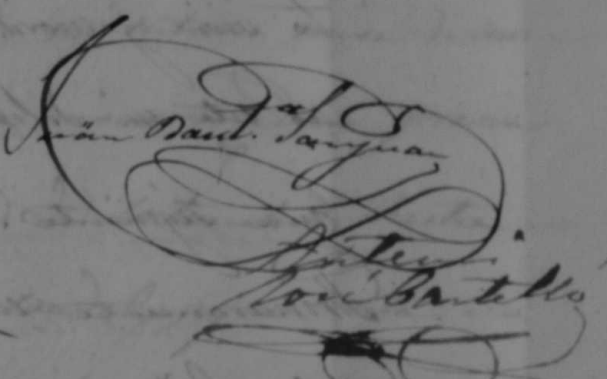 Juan Baut.ª Sanjuan
Ante mi
José Castelló